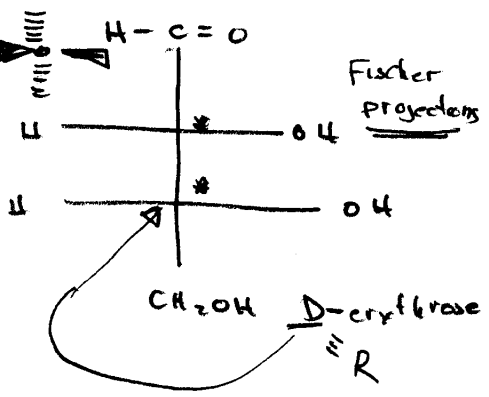 H - C = O
Fischer
projections
H * OH
H * OH
CH₂OH
D-erythrose
R